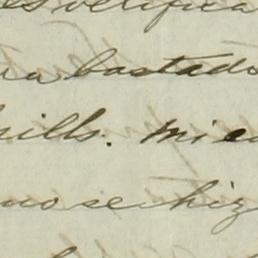 es verifica
ra bastado
hills. Mien
no se hiz